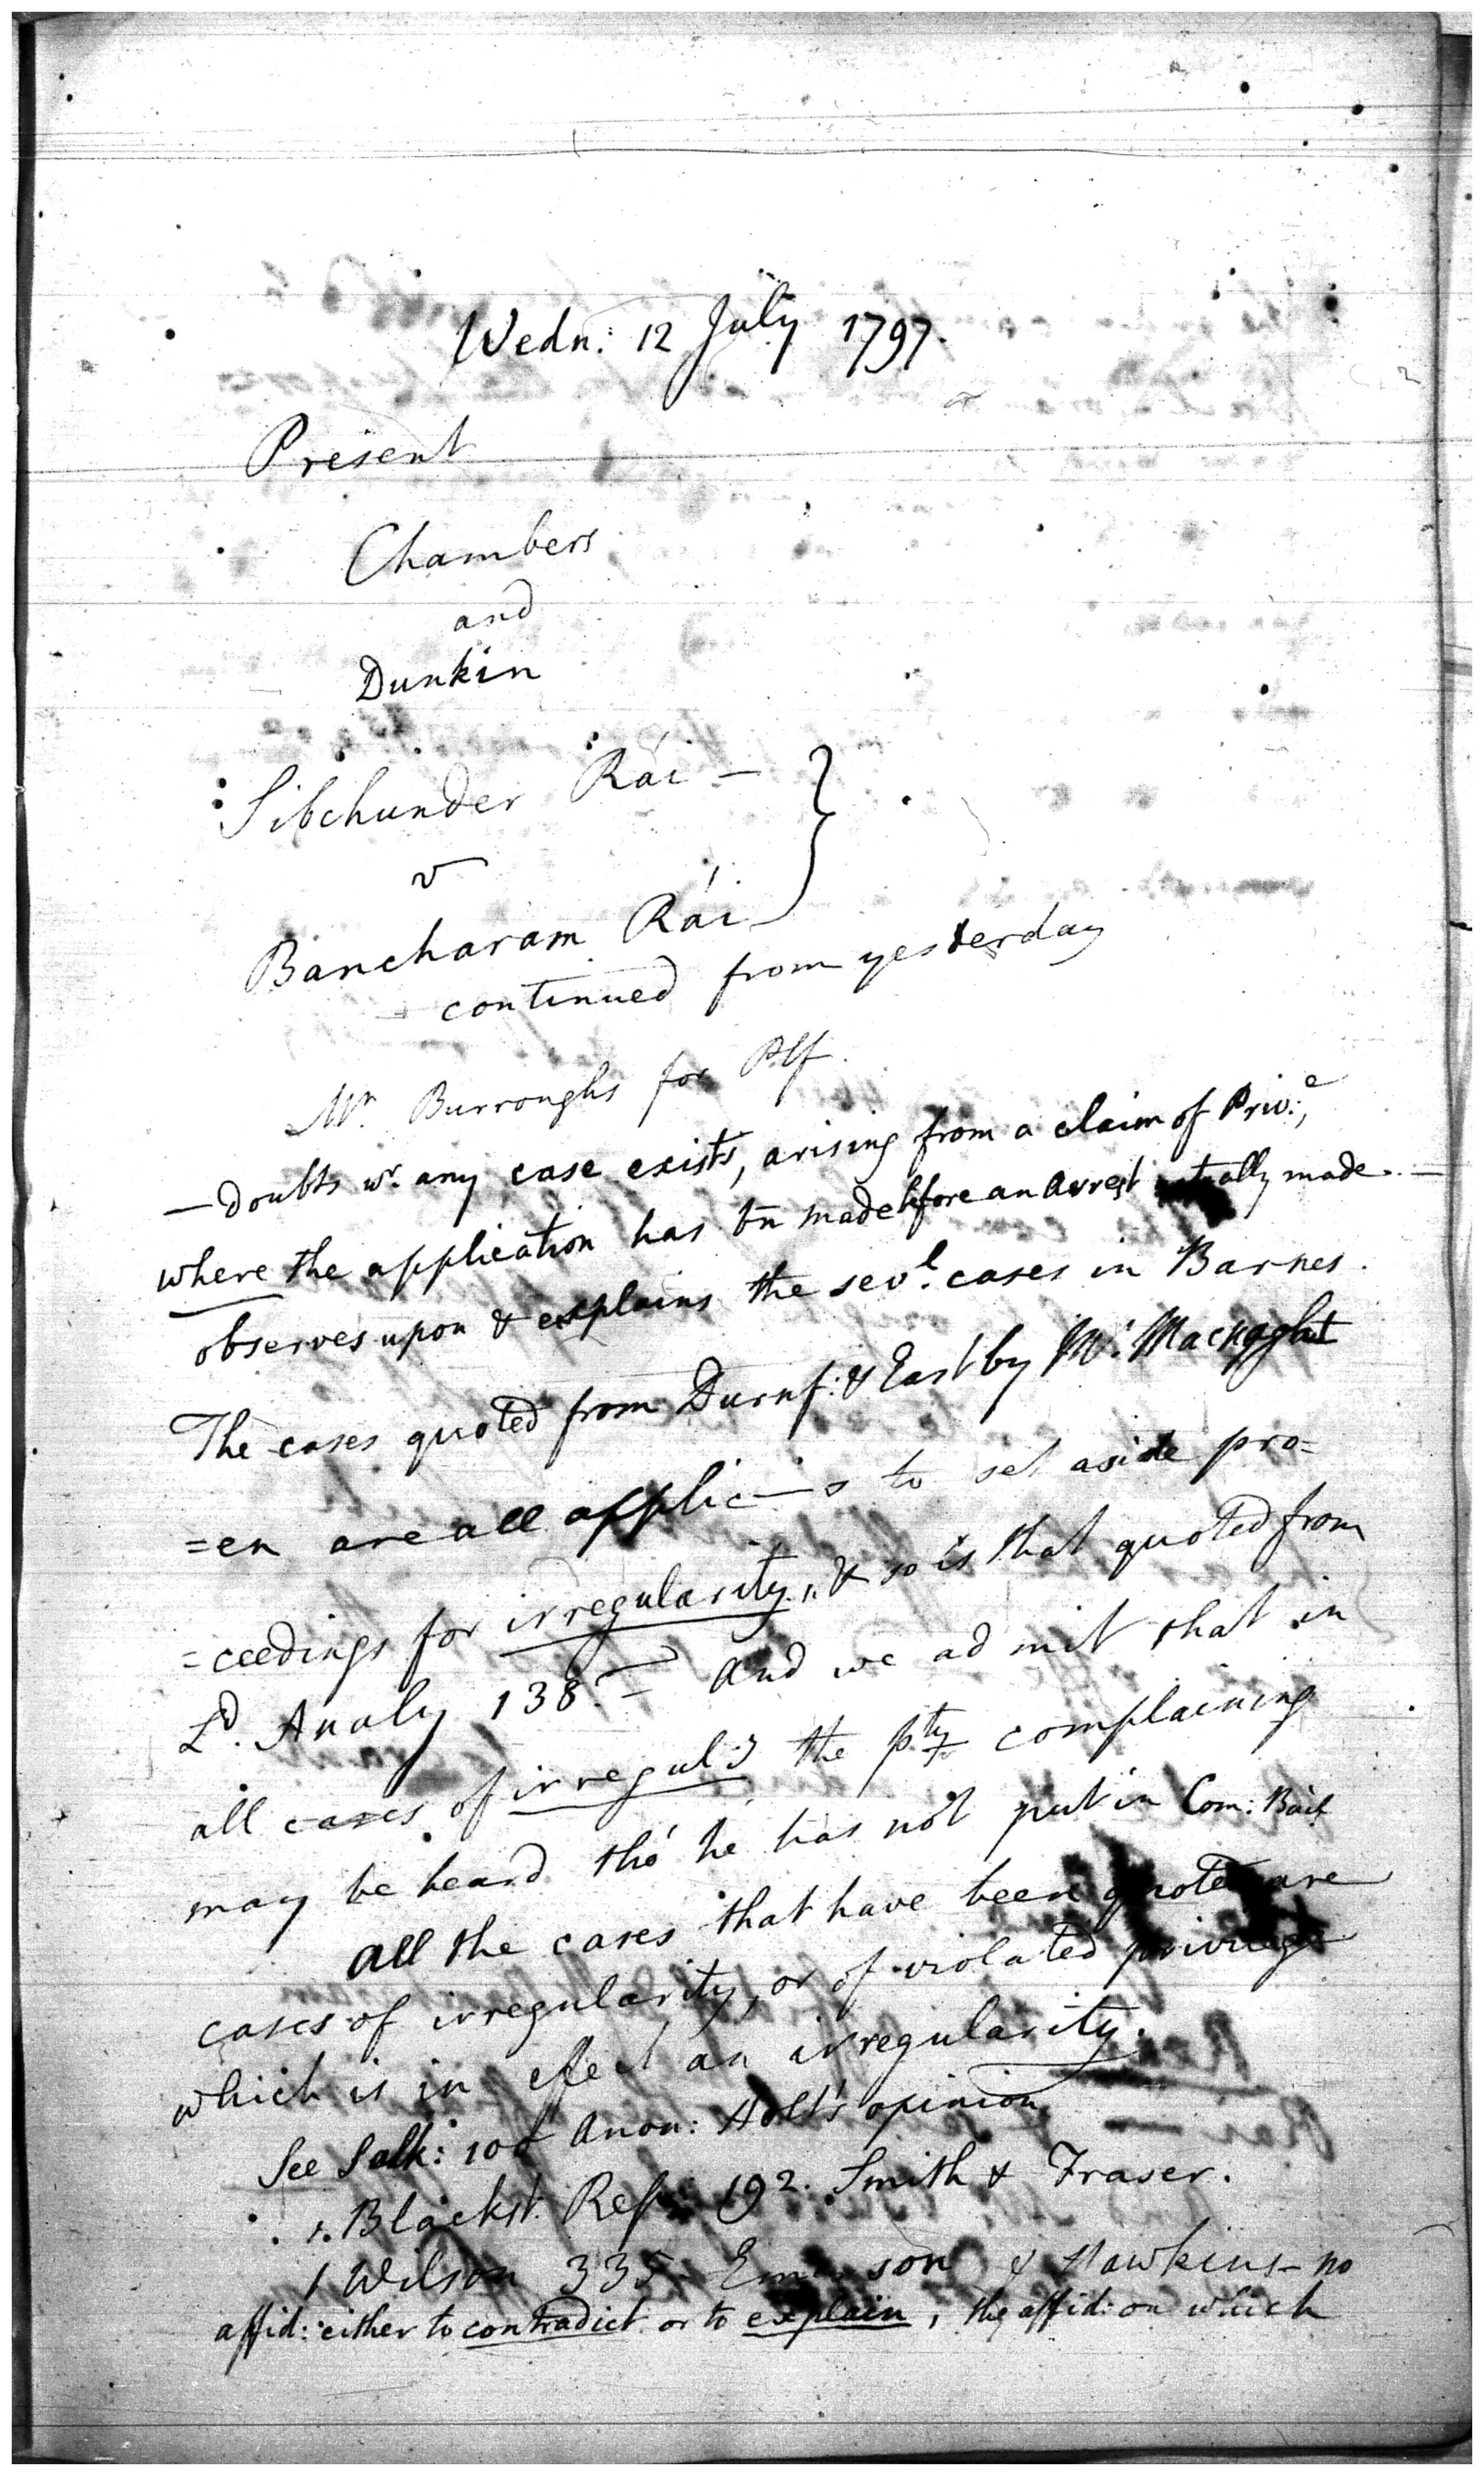 Wedn: 12 July 1797.
Present
Chambers
and
Dunkin
Sibchunder Rái —
v
Bancharam Rái
continued from yesterday
Mr. Burroughs for Plf.
— doubts wr. any case exists, arising from a claim of Priv:e,
where the application has bn made before an arrest actually made. —
observes upon & explains the sevl. cases in Barnes.
The cases quoted from Durnf: & East by Mr. Macnaght
=en are all applic—s to set aside pro=
=ceedings for irregularity, & so is that quoted from
Ld. Analy 138. — and we admit that in
all cases of irregul:y the pty complaining
may be heard tho' he has not put in Com: Bail
all the cases that have been quoted are
cases of irregularity, or of violated privilege
which is in efect an irregularity.
See Salk: Anon: Holt's opinion
1. Blackst. Rep: 192. Smith & Fraser.
1 Wilson 335 Emerson & Hawkins — no
affid: either to contradict or to explain, the affid: on which